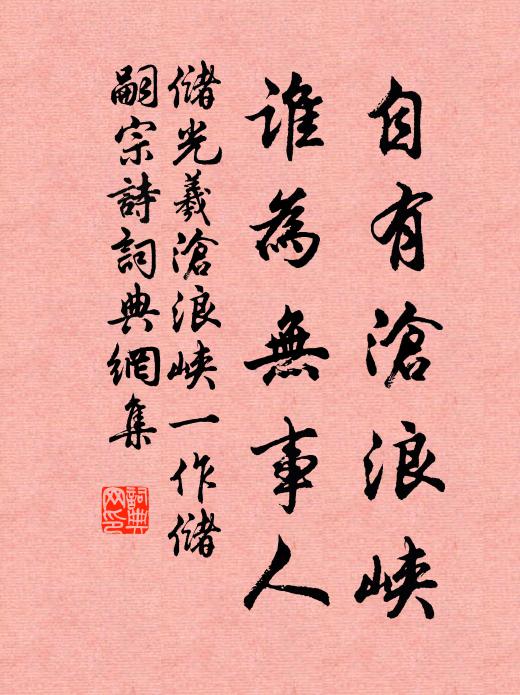 自有滄浪峽
誰為無事人
儲光羲滄浪峽一作儲
嗣宗詩詞典網集
詞典网印